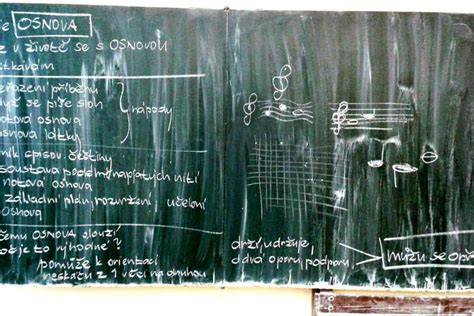 je OSNOVA
v životě se s OSNOVOU
řazení příběhu
když se píše sloh
notová osnova
osnova látky
nápady
spisov. češtiny
soustava podélně napjatých nití
notová osnova
základní plán, rozvržení, učební
osnova
čemu OSNOVA slouží
je to výhodné?
pomůže k orientaci
neskáču z 1 věci na druhou
drží, udržuje,
dává oporu, podporu
můžu se opř